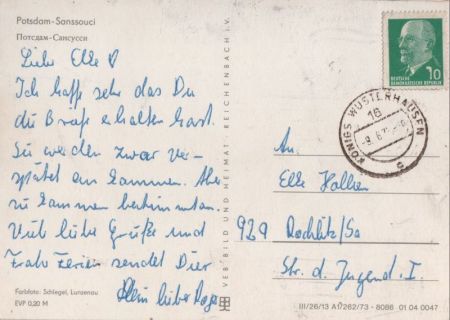 Potsdam-Sanssouci
Потсдам-Сансусси
Liebe Elke
Ich hoffe sehr das Du
die Briefe erhalten hast.
Sie werden zwar ver-
spätet an kommen. Aber
zu kommen bestimmt an.
Viele liebe Grüße und
Frohe Ferien sendet Dir
Dein lieber
Farbfoto: Schlegel, Lunzenau
EVP 0,20 M
VEB BILD UND HEIMAT REICHENBACH i.V.
DEUTSCHE
DEMOKRATISCHE REPUBLIK
10
KÖNIGS WUSTERHAUSEN
16
An:
Elke
929 Rochlitz/Sa
Str. d. Jugend I.
III/26/13 A1/262/73-8086 01 04 0047